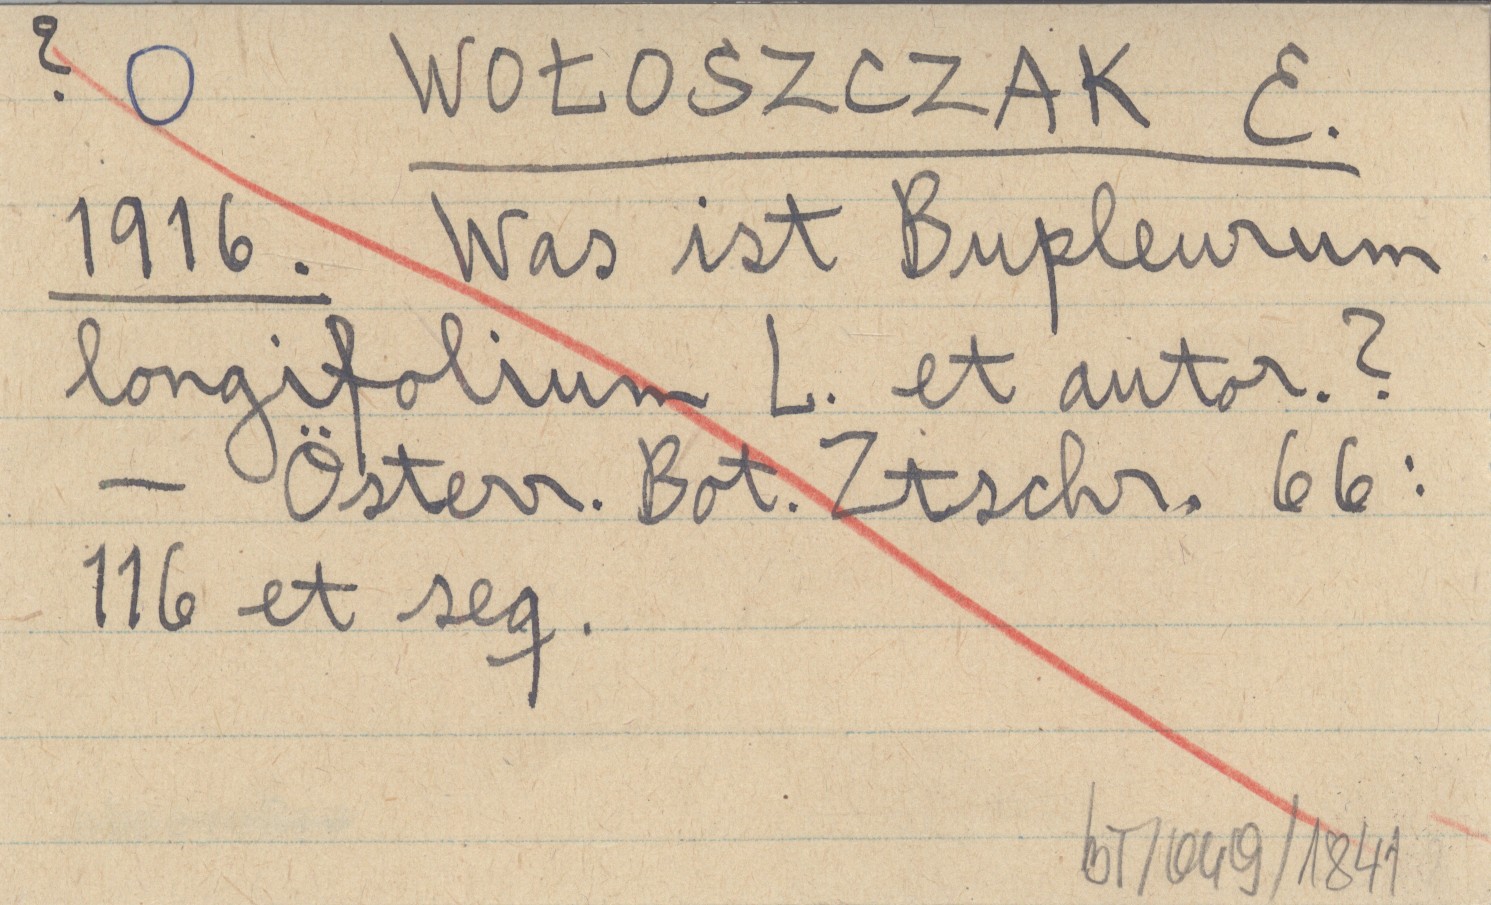 ? O WOŁOSZCZAK E.
1916. Was ist Bupleurum
longifolium L. et autor.?
— Österr. Bot. Ztschr. 66:
116 et seq.
bT/049/1841